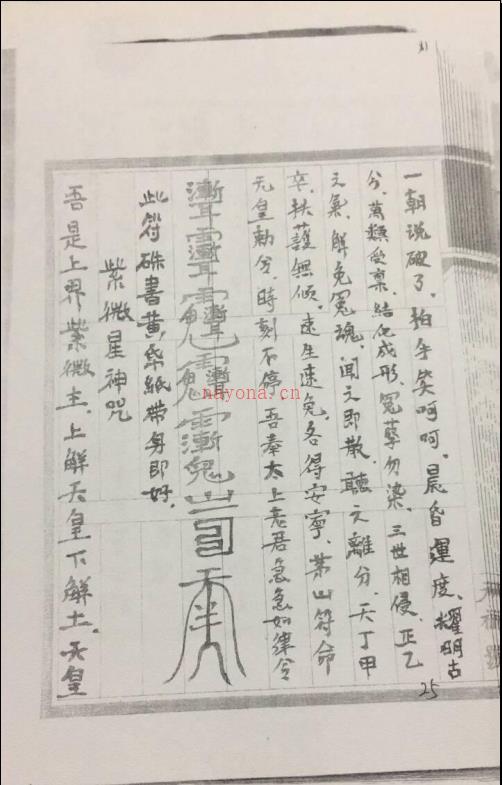 一朝说破了，拍手笑呵呵。晨昏運度，耀明古
分，萬類受稟，结化成形，冤孽勿染，三世相侵，正乙
之氣，解免冤魂，闻之即散，聽之離分，天丁甲
卒，扶護無傾，速生速兔，各得安寧，茅山符命
元皇勅兮，時刻不停，吾奉太上老君急急如律令
此符硃書黄桑紙带身即好，
紫微星神咒
吾是上界紫微主，上解天皇下解土，天皇
25
nayona.cn